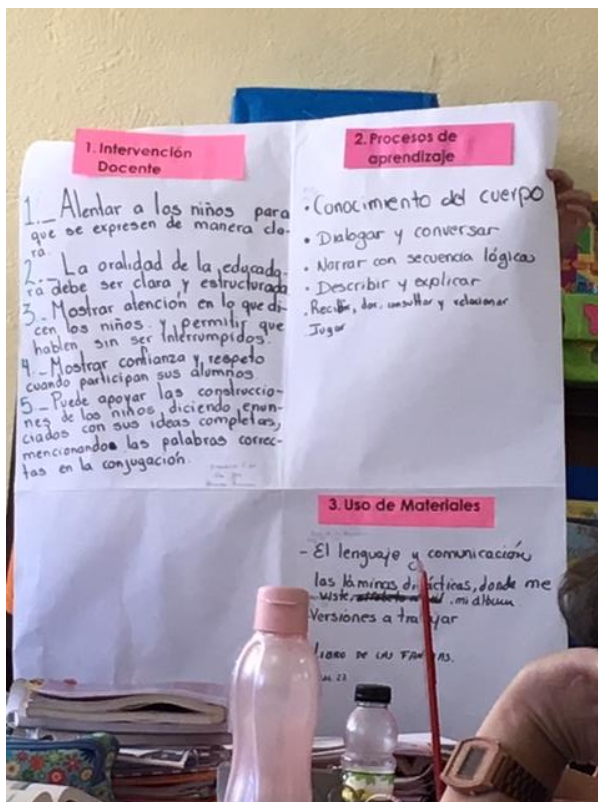 1. Intervención
Docente
1._ Alentar a los niños para
que se expresen de manera cla-
ra.
2._ La oralidad de la educado-
ra debe ser clara y estructurada
3._ Mostrar atención en lo que di-
cen los niños y permitir que
hablen sin ser interrumpidos.
4._ Mostrar confianza y respeto
cuando participan sus alumnos
5._ Puede apoyar las construccio-
nes de los niños diciendo enun-
ciados con sus ideas completas,
mencionando las palabras correc-
tas en la conjugación.
2. Procesos de
aprendizaje
• Conocimiento del cuerpo
• Dialogar y conversar
• Narrar con secuencia lógica
• Describir y explicar
. Recibir, dar, consultar y relacionar
. Jugar
3. Uso de Materiales
- El lenguaje y comunicación,
las láminas didácticas, donde me
mi álbum
Versiones a trabajar
LIBRO DE LAS FAMILIAS.